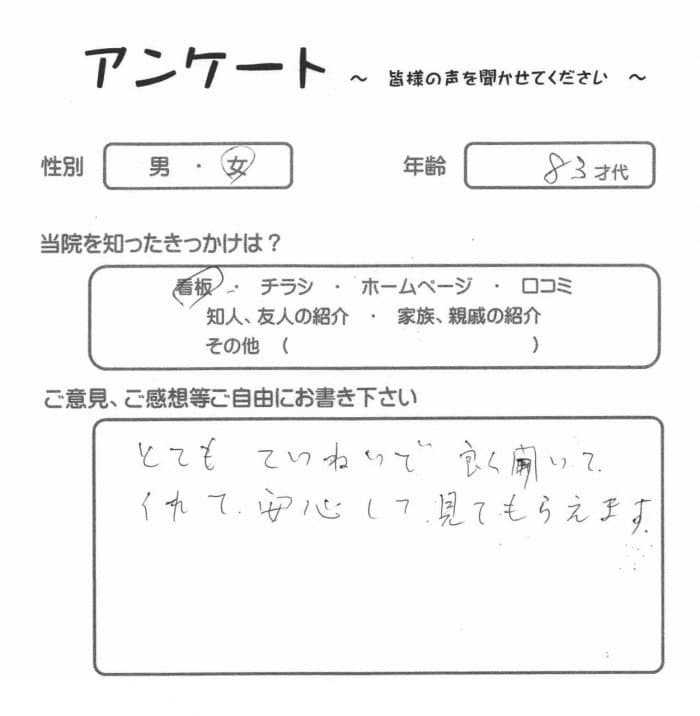 アンケート ～ 皆様の声を聞かせてください ～
性別 男 ・ 女 年齢 83才代
当院を知ったきっかけは？
看板 ・ チラシ ・ ホームページ ・ 口コミ
知人、友人の紹介 ・ 家族、親戚の紹介
その他 ( )
ご意見、ご感想等ご自由にお書き下さい
とても ていねいで 良く聞いて
くれて、安心して、見てもらえます。